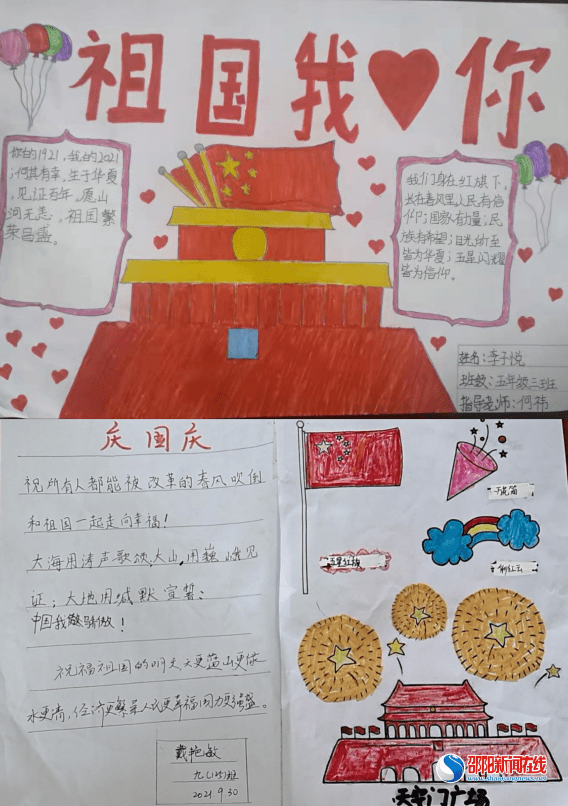 祖国我你
你的1921,我的2021
;何其有幸,生于华夏
,见证百年,愿山
河无恙,祖国繁
荣昌盛。
我们身在红旗下,
长在春风里,人民有信
仰;国家有力量;民
族有希望;目光所至
皆为华夏;五星闪耀
皆为信仰。
姓名:李子悦
班级:五年级三班
指导老师:何祎
庆国庆
祝所有人都能被改革的春风吹倒
和祖国一起走向幸福!
大海用涛声歌颂,大山,用巍峨见
证;大地用缄默宣誓:
中国我骄傲!
祝福祖国的明天天更蓝山更绿
水更清,经济更繁荣人民更幸福国力更强盛。
戴艳敏
九(15)班
2021 9.30
五星红旗
天安门广场
邵阳新闻在线